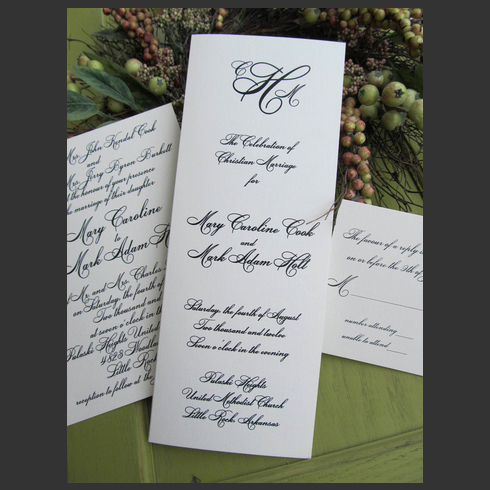 Mr. John Kendal Cook
and
Mrs. Jerry Byron Burkett
the honour of your presence
the marriage of their daughter
Mary Caroline
to
Mark Adam
Mr. and Mrs. Charles
Saturday, the fourth of
Two thousand and
at seven o'clock in the
Pulaski Heights United
4823 Woodlawn
Little Rock
reception to follow at the
C H M
The Celebration of
Christian Marriage
for
Mary Caroline Cook
and
Mark Adam Holt
Saturday, the fourth of August
Two thousand and twelve
Seven o'clock in the evening
Pulaski Heights
United Methodist Church
Little Rock, Arkansas
The favour of a reply is
on or before the 9th of
M
number attending
unable to attend